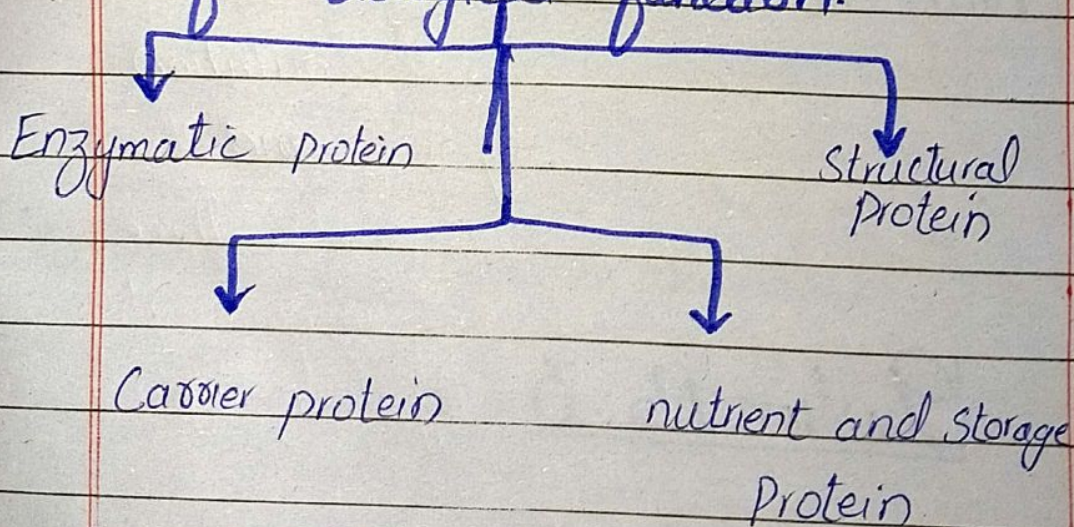 function.
Enzymatic protein
Structural
protein
Carrier protein
nutrient and storage
protein